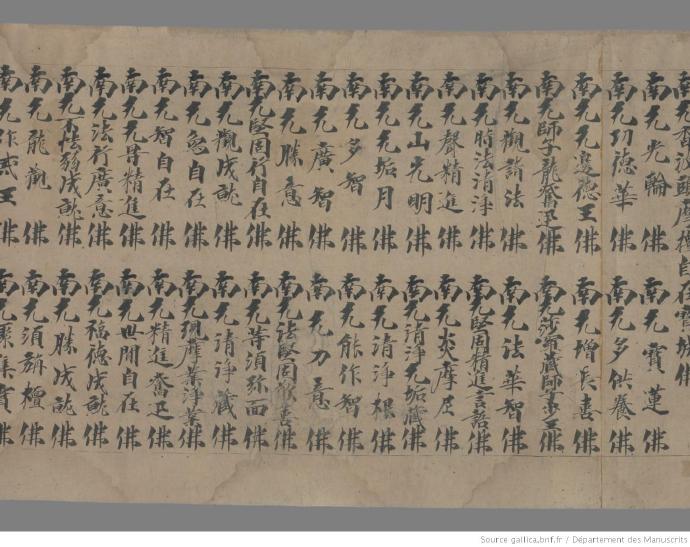 南无香波頭摩擇自在寶城佛
南无光輪佛 南无寶蓮佛
南无功德華佛 南无多供養佛
南无无邊德王佛 南无增長喜佛
南无師子龍奮迅佛 南无沙藏師子王佛
南无觀諸法佛 南无法華智佛
南无時法清淨佛 南无堅固精進言語佛
南无聲精進佛 南无炎摩尼佛
南无山光明佛 南无清淨无垢藏佛
南无无垢月佛 南无清淨根佛
南无多智佛 南无能作智佛
南无廣智佛 南无力意佛
南无勝意佛 南无法堅固歡喜佛
南无堅固行自在佛 南无等須弥面佛
南无觀成就佛 南无清淨藏佛
南无自在佛 南无現業淨業
南无智自在佛 南无精進奮迅佛
南无无导精進佛 南无世間自在佛
南无法行廣意佛 南无福德成就佛
南无不怯弱成就佛 南无勝成就佛
南无龍觀佛 南无須旃檀佛
南无作戒王佛 南无聚集寶佛
Source gallica.bnf.fr / Département des Manuscrits